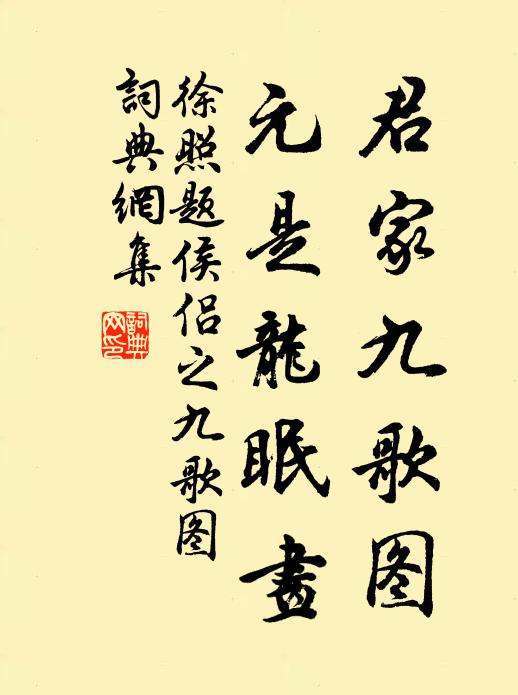 君家九歌图
元是龍眠畫
徐照题侯侣之九歌图
詞典網集
詞典网印